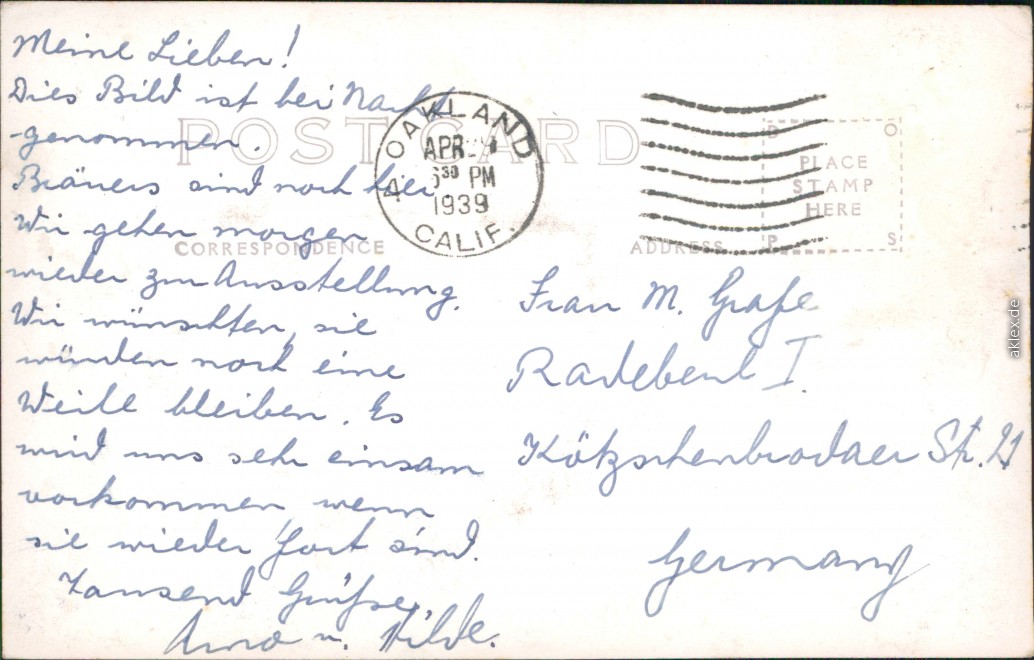 Meine Lieben!
Dies Bild ist bei Nacht
genommen.
sind noch hier
Wir gehen morgen
wieder zur Ausstellung.
Wir wünschten, sie
würden noch eine
Weile bleiben. Es
wird uns sehr einsam
vorkommen wenn
sie wieder fort sind.
Tausend Grüße,
Arno u. Hilde.
POST CARD
CORRESPONDENCE
OAKLAND
APR
6 30 PM
1939
CALIF.
PLACE
STAMP
HERE
ADDRESS
Frau M. Grafe
Radebeul I.
Kötzschenbrodaer Str. 21
Germany
aklex.de